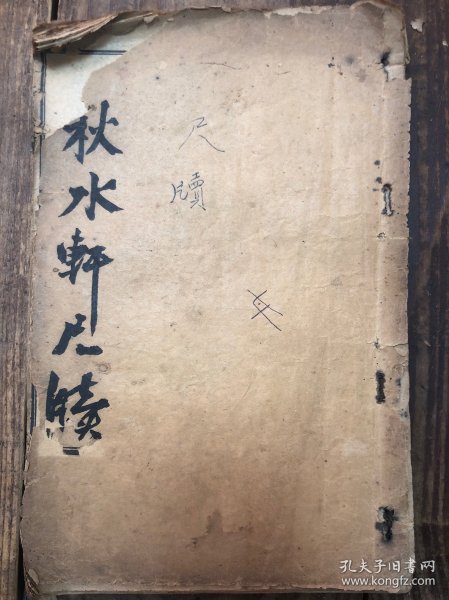 秋水軒尺牘
尺牘
孔夫子旧书网
www.kongfz.com